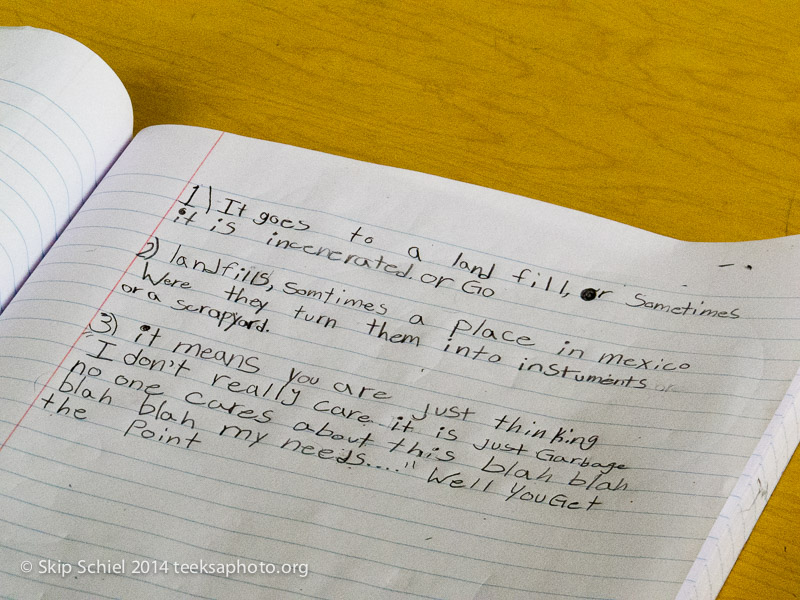 1) It goes to a land fill, or Sometimes
it is incenerated. or Go
2) landfills, Somtimes a place in mexico
Were they turn them into instuments or
or a scrapyard.
3) it means you are just thinking
"I don't really care it is just Garbage
no one cares about this blah blah
blah blah my needs...." Well You Get
the Point
© Skip Schiel 2014 teeksaphoto.org